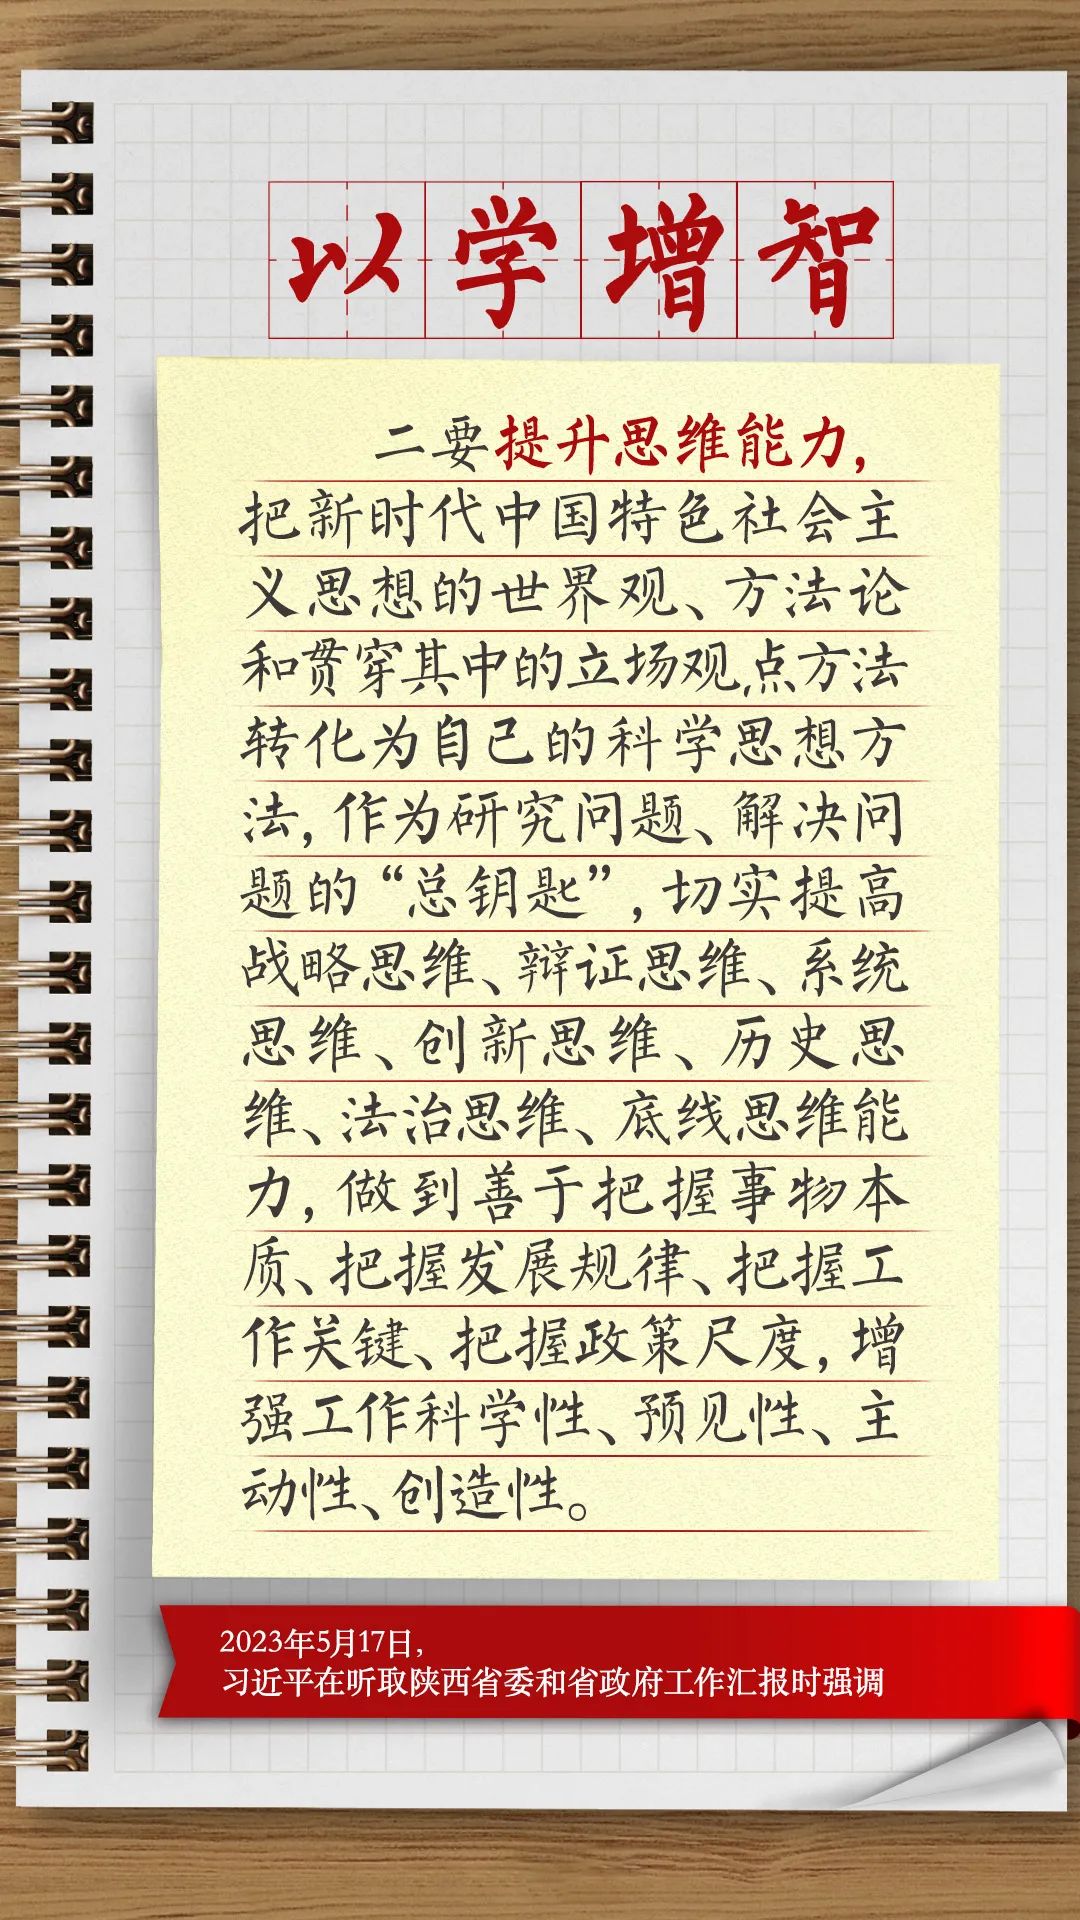 以学增智
二要提升思维能力，
把新时代中国特色社会主
义思想的世界观、方法论
和贯穿其中的立场观点方法
转化为自己的科学思想方
法，作为研究问题、解决问
题的“总钥匙”，切实提高
战略思维、辩证思维、系统
思维、创新思维、历史思
维、法治思维、底线思维能
力，做到善于把握事物本
质、把握发展规律、把握工
作关键、把握政策尺度，增
强工作科学性、预见性、主
动性、创造性。
2023年5月17日，
习近平在听取陕西省委和省政府工作汇报时强调